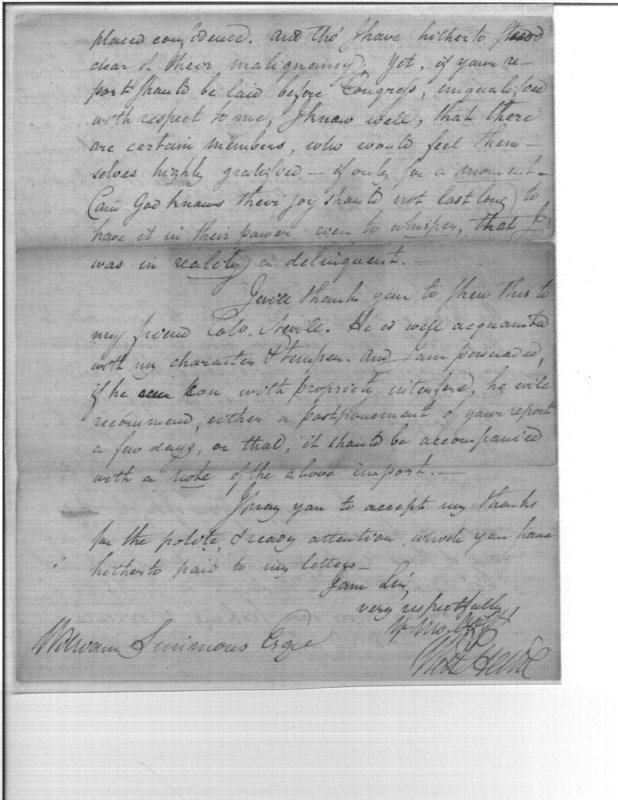 placed confidence. And tho' I have hitherto stood
clear of their malignancy; Yet, if your re-
port should be laid before Congress, unqualified
with respect to me, I know well, that there
are certain members, who would feel them-
selves highly gratified, - if only for a moment -
(and God knows their joy should not last long) to
have it in their power even to whisper, that, I
was in reality a delinquent. -
I will thank you to shew this to
my friend Colo. Nevile. He is well acquainted
with my character & temper. and I am persuaded,
if he can with propriety interfere, he will
recommend, either a postponement of your report
a few days, or that, it should be accompanied
with a note of the above import. -
I pray you to accept my thanks
for the polite, & ready attention which you have
hitherto paid to my letters -
I am Sir,
very respectfully
William Simmons Esqe